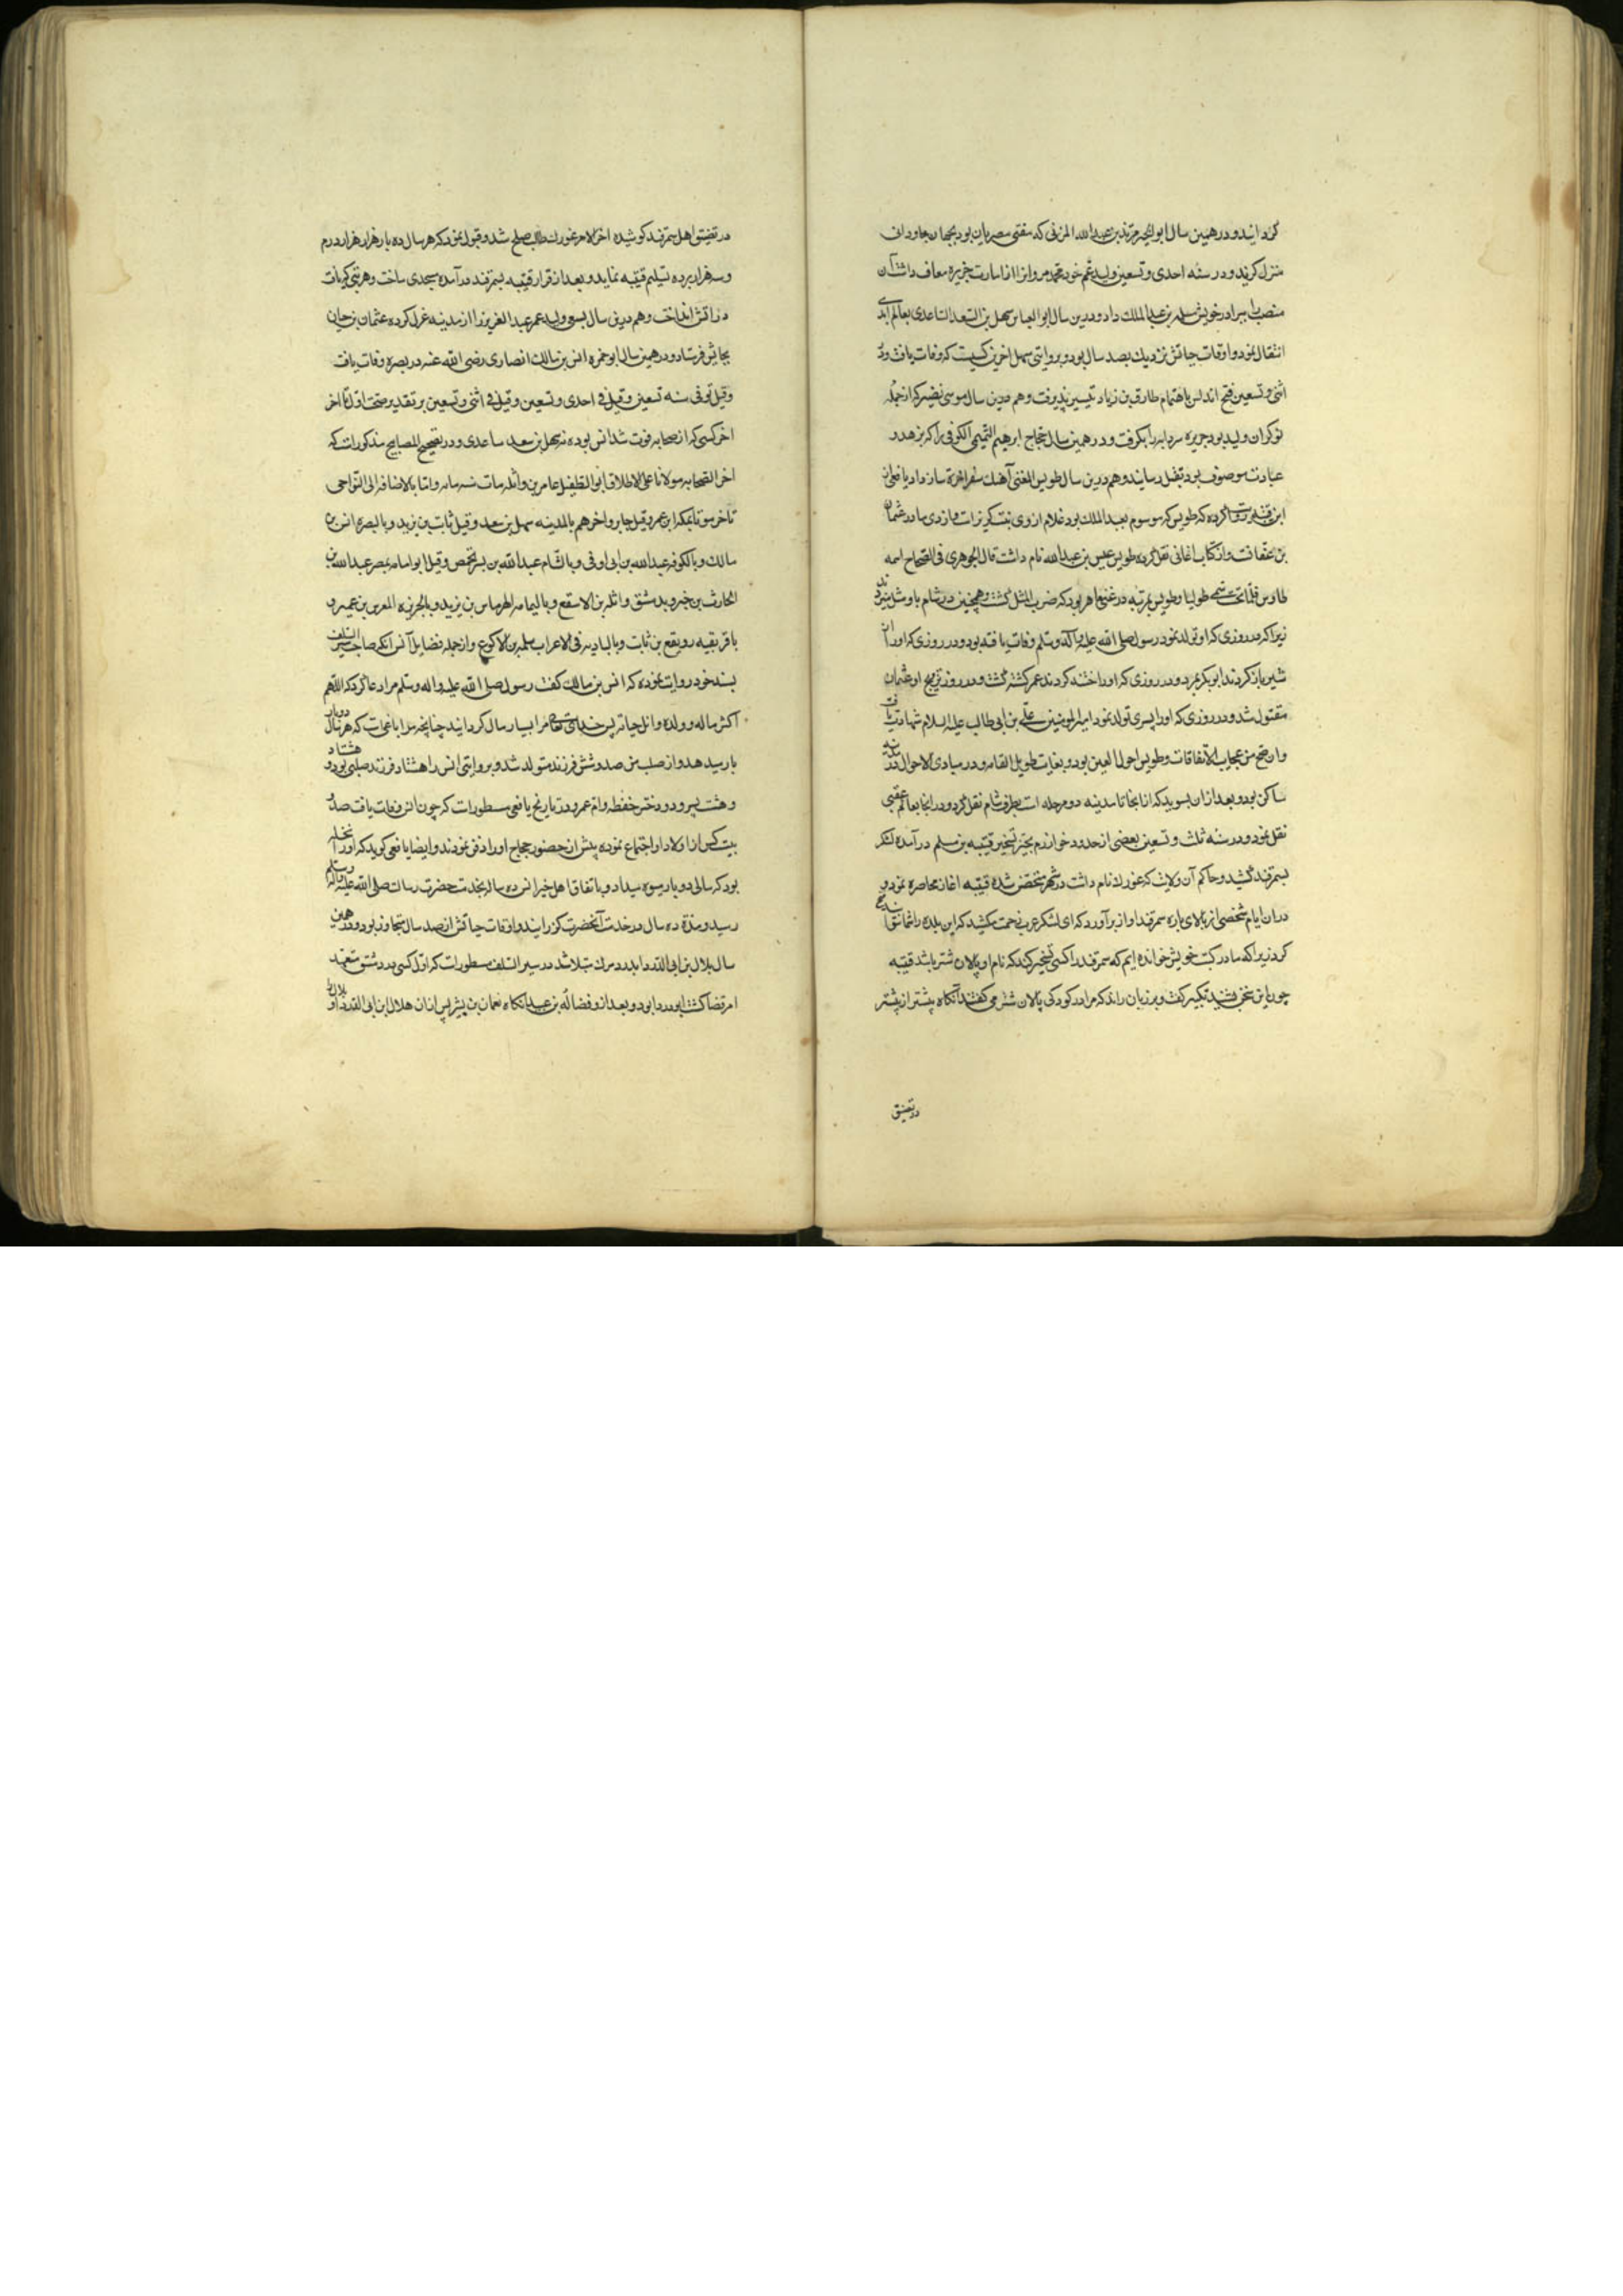 گردانید و در همین سال ابو الخیر مرثد بن عبد الله المزنی که مفتی مصریان بود بجهان جاودانی
منزل گزید و در سنه احدی و تسعین ولید عم خود محمد مروان را از امارت جزیره معاف داشت آن
منصب را ببرادر خویش مسلمة بن عبد الملک داد و درین سال ابو العباس سهل بن السعد الساعدی بعالم ابدی
انتقال نمود و اوقات حیاتش نزدیک بصد سال بود و بروایتی سهل اخرین کسیست که وفات یافت و در
اثنی و تسعین فتح اندلس باهتمام طارق بن زیاد تیسیر پذیرفت و هم درین سال موسی نضیر که از جمله
نوکران ولید بود جزیره سردانیه را بگرفت و در همین سال حجاج ابرهیم التمیمی الکوفی را که بزهد و
عبادت موصوف بود بقتل رسانید و هم درین سال طویس المغنی آهنک سفر اخرة ساز داد یافعی از
ابن قتیبه روایت کرده که طویس که موسوم بعبد الملک بود غلام اروی بنت کریز است و اروی مادر عثمان
بن عفانست و از کتاب اغانی نقل کرده طویس عیسی بن عبدالله نام داشت قال الجوهری فی الصحاح اسمه
طاوس فلما تخنث سمی طویسا و طویس بمرتبه در غنی ماهر بود که ضرب المثل گشت و همچنین در شام باو مثل میزدند
زیرا که در روزی که او تولد نمود رسول صلی الله علیه و اله وسلم وفات یافته بود و در روزی که او را از
شیر باز کردند ابوبکر بمرد و در روزی که او را ختنه کردند عمر کشته گشت و در روز تزویج او عثمان
مقتول شد و در روزی که او را پسری تولد نمود امیر المومنین علی بن ابی طالب علیه السلام شهادت یافت
و این من عجایب الاتفاقات و طویس احول العین بود و بغایت طویل القامه و در مبادی الاحوال در مدینه
ساکن بود و بعد ازان بسوید که از انجا تا مدینه دو مرحله است بطرف شام نقل کرد و در انجا بعالم عقبی
نقل نمود و در سنه ثلث و تسعین بعضی از حدود خوارزم بحیز تسخیر قتیبه بن مسلم در آمده لشکر
بسمرقند کشید و حاکم آن ولایت که غورک نام داشت در شهر متحصن شده قتیبه اغاز محاصره نمود و
دران ایام شخصی از بالای باره سمرقند اواز برآورد که ای لشکر عرب زحمت مکشید که این بلده را شما نتوانید
کرد زیرا که ما در کتب خویش خوانده ایم که سمرقند را کسی تسخیر کند که نام او پالان شتر باشد قتیبه
چون این سخن بشنید تکبیر گفت و بر زبان راند که مرا در کودکی پالان شتر می گفتند آنگاه پیشتر از پیشتر
در تضییق
در تضییق اهل سمرقند کوشیده اخر الامر غورک طالب صلح شد و قبول نمود که هر سال ده بار هزار هزار درم
و سه هزار برده تسلیم قتیبه نماید و بعد از قرار قتیبه بسمرقند درآمده مسجدی ساخت و هر بتی که یافت
در آتش انداخت و هم درین سال ولید عمر عبد العزیز را از مدینه عزل کرده عثمان بن حیان
بجایش فرستاد و در همین سال ابو حمزه انس بن مالک انصاری رضی الله عنه در بصره وفات یافت
و قیل توفی سنه تسعین و قیل فی احدی و تسعین و قیل فی اثنی و تسعین بر تقدیر صحت اول تا اخر
اخر کسی که از صحابه فوت شد انس بوده نه سهل بن سعد ساعدی و در تصحیح المصابیح مذکور است که
اخر الصحابه موتا علی الاطلاق ابو الطفیل عامر بن واثله مات سنه مایه و اما بالاضافه الی النواحی
فاخر موتا بمکه ابن عمر و قیل جابر و اخرهم بالمدینه سهل بن سعد و قیل ثابت بن یزید و بالبصره انس بن
مالک و بالکوفه عبدالله بن ابی اوفی و بالشام عبدالله بن بسر بحمص و قیل ابو امامه بمصر عبدالله بن
الحارث بن جزء و بدمشق واثله بن الاسقع و بالیمامه الهرماس بن زیاد و بالجزیره العرس بن عمیره و
بافریقیه رویفع بن ثابت و بالبادیه فی الاعراب سلمه بن الاکوع و از جمله فضایل انس آنکه صاحب سیر السلف
بسند خود روایت نموده که انس بن مالک گفت رسول صلی الله علیه و اله وسلم مرا دعا کرد که اللهم
اکثر ماله و ولده و اطل حیاته پس خدای تعالی مرا بسیار مال گردانید چنانچه مرا باغیست که هر سال دوبار
بار میدهد و از صلب من صد و شش فرزند متولد شد و بروایتی انس را هشتاد فرزند صلبی بود هشتاد
و هشت پسر و دو دختر حفصه و ام عمرو و در تاریخ یافعی مسطور است که چون انس وفات یافت صد و
بیست کس از اولاد او اجتماع نموده پیش از حضور حجاج او را دفن نمودند و ایضا یافعی گوید که او را نخله
بود که سالی دوبار میوه میداد و باتفاق اهل خبر انس ده ساله بخدمت حضرت رسالت صلی الله علیه و اله و سلم
رسید و مدة ده سال در خدمت آنحضرت گذرانید و اوقات حیاتش از صد سال متجاوز بود و در همین
سال بلال بن ابی الدرداء بدرد مرک مبتلا شد در سیر السلف مسطور است که اول کسی که در دمشق متعهد
امر قضا گشت ابو دردا بود و بعد ازو فضاله بن عبید آنگاه نعمان بن بشیر پس ازان بلال بن ابی الدرداء و